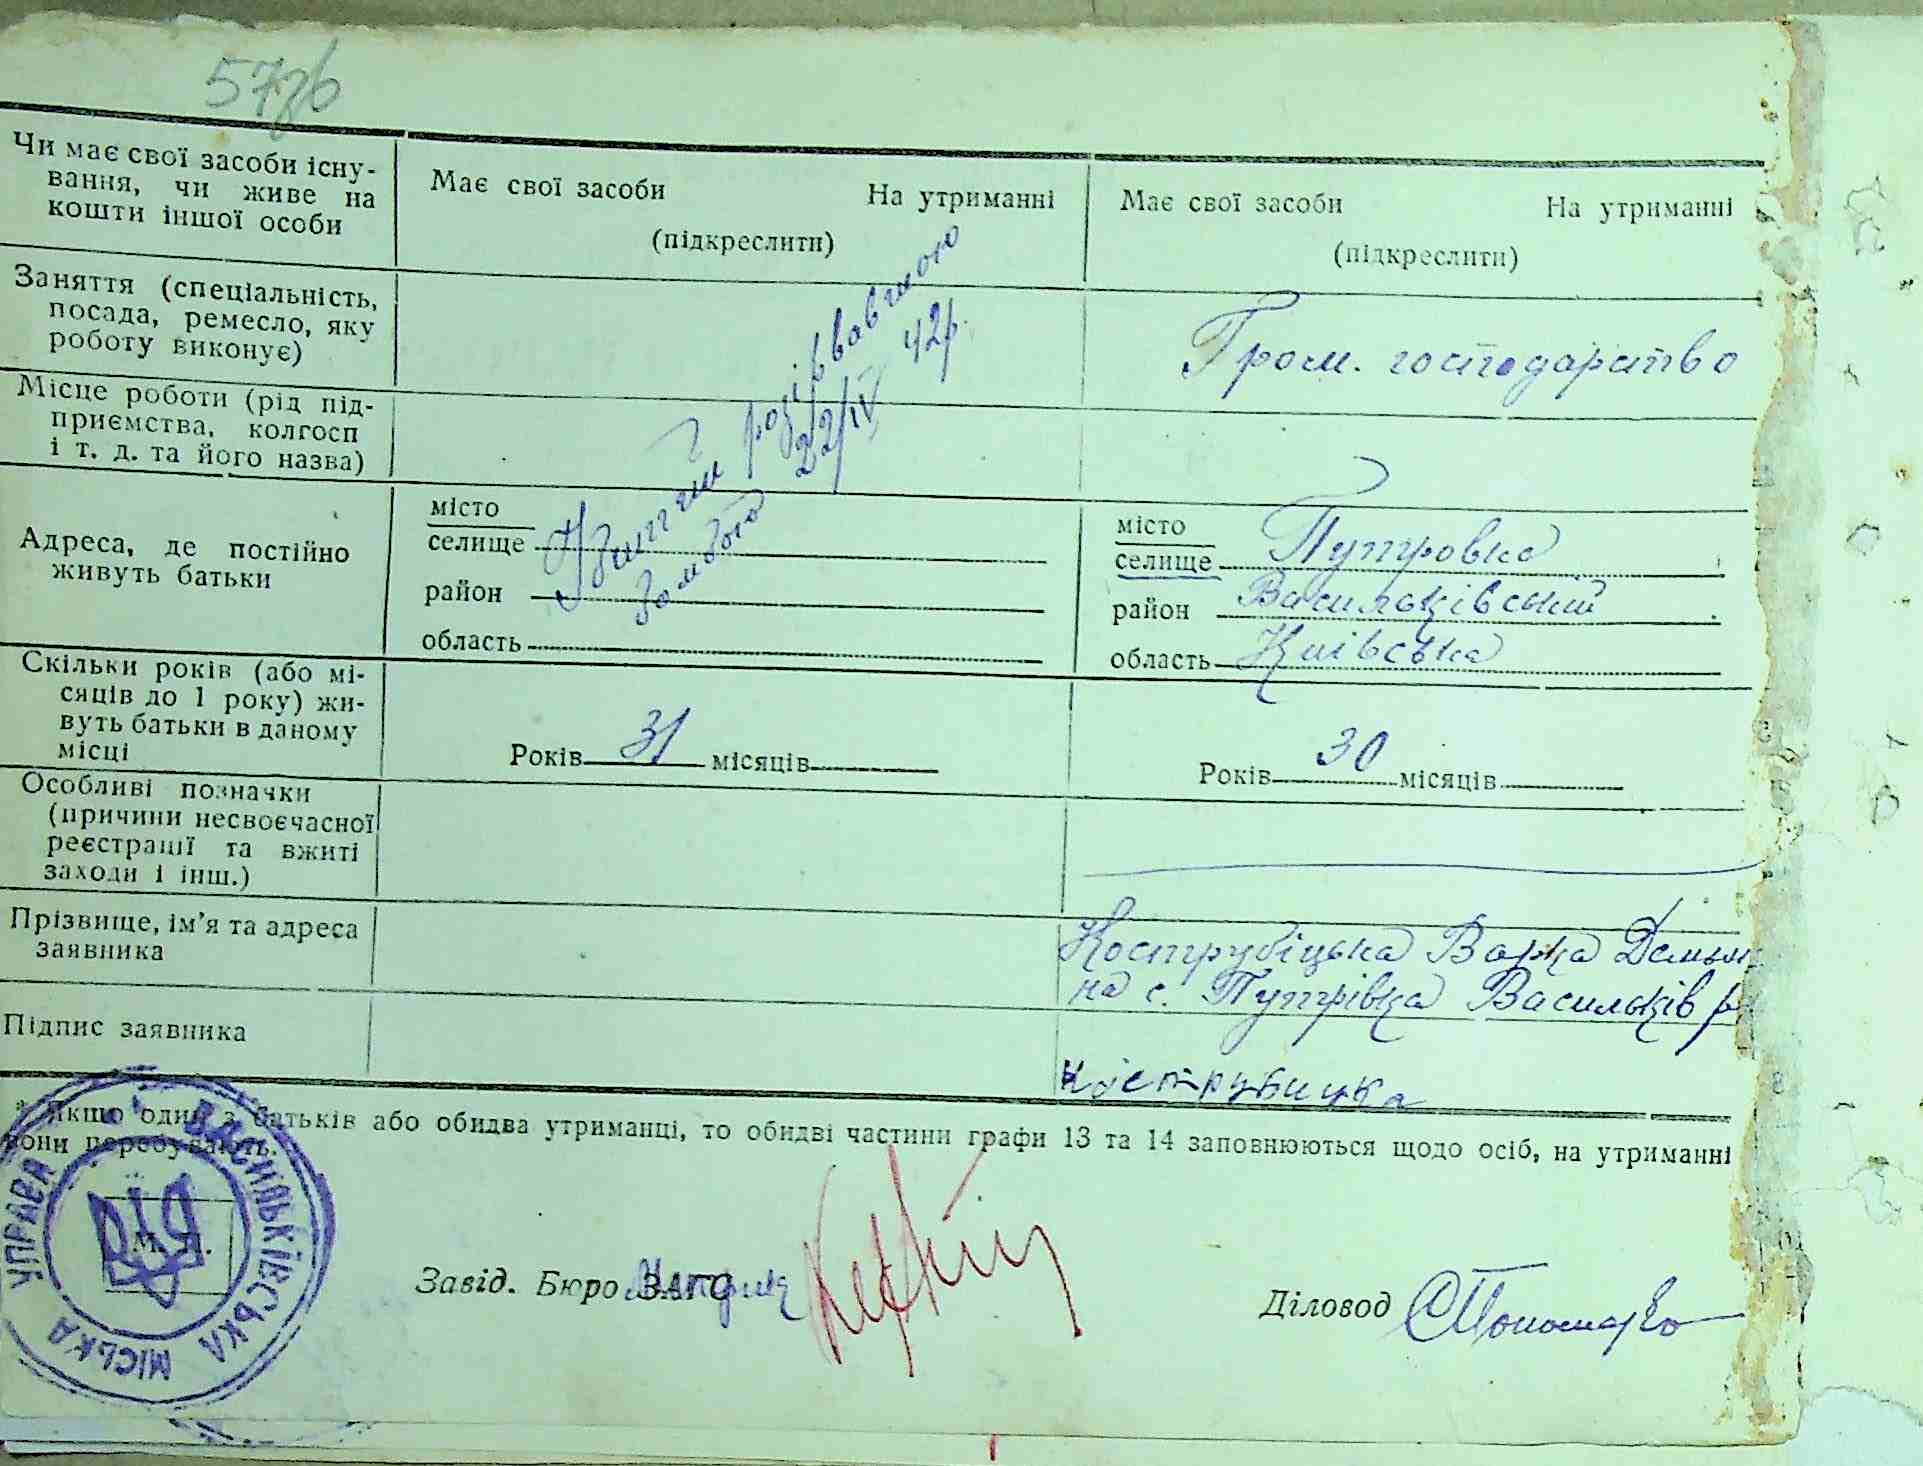 57зв
Чи має свої засоби існу-
вання, чи живе на
кошти іншої особи
Має свої засоби На утриманні
(підкреслити)
Має свої засоби На утриманні
(підкреслити)
Заняття (спеціальність,
посада, ремесло, яку
роботу виконує)
Гром. господарство
Місце роботи (рід під-
приємства, колгосп
і т. д. та його назва)
22/IV 42р.
Адреса, де постійно
живуть батьки
місто
селище
район
область
місто
селище Путровка
район Васильківський
область Київська
Скільки років (або мі-
сяців до 1 року) жи-
вуть батьки в даному
місці
Років 31 місяців
Років 30 місяців
Особливі позначки
(причини несвоєчасної
реєстрації та вжиті
заходи і інш.)
Прізвище, ім'я та адреса
заявника
Кострубіцька Варка Демьи
на с. Путрівка Васильків р
Підпис заявника
Кострубицка
* Якщо один з батьків або обидва утриманці, то обидві частини графи 13 та 14 заповнюються щодо осіб, на утриманні
вони перебувають.
ВАСИЛЬКІВСЬКА МІСЬКА УПРАВА
М. П.
Завід. Бюро ЗАГС
Діловод